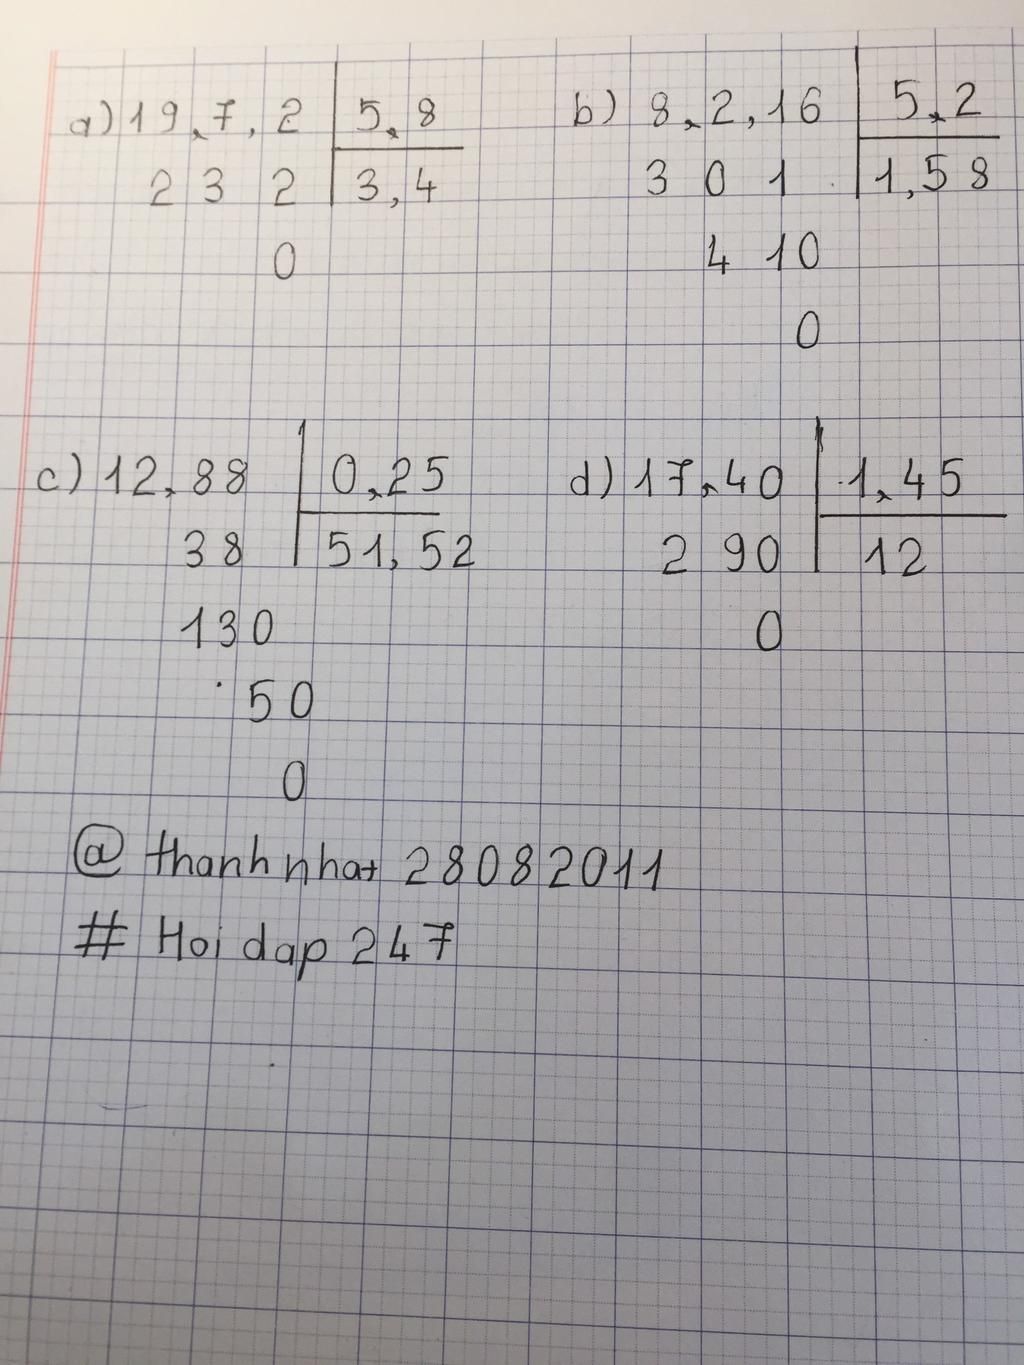 a) 19,7,2 5,8
232 3,4
0
b) 8,2,16 5,2
301 1,58
410
0
c) 12,88 0,25
38 51,52
130
50
0
d) 17,40 1,45
290 12
0
@ thanhnhat 28082011
# Hoidap247